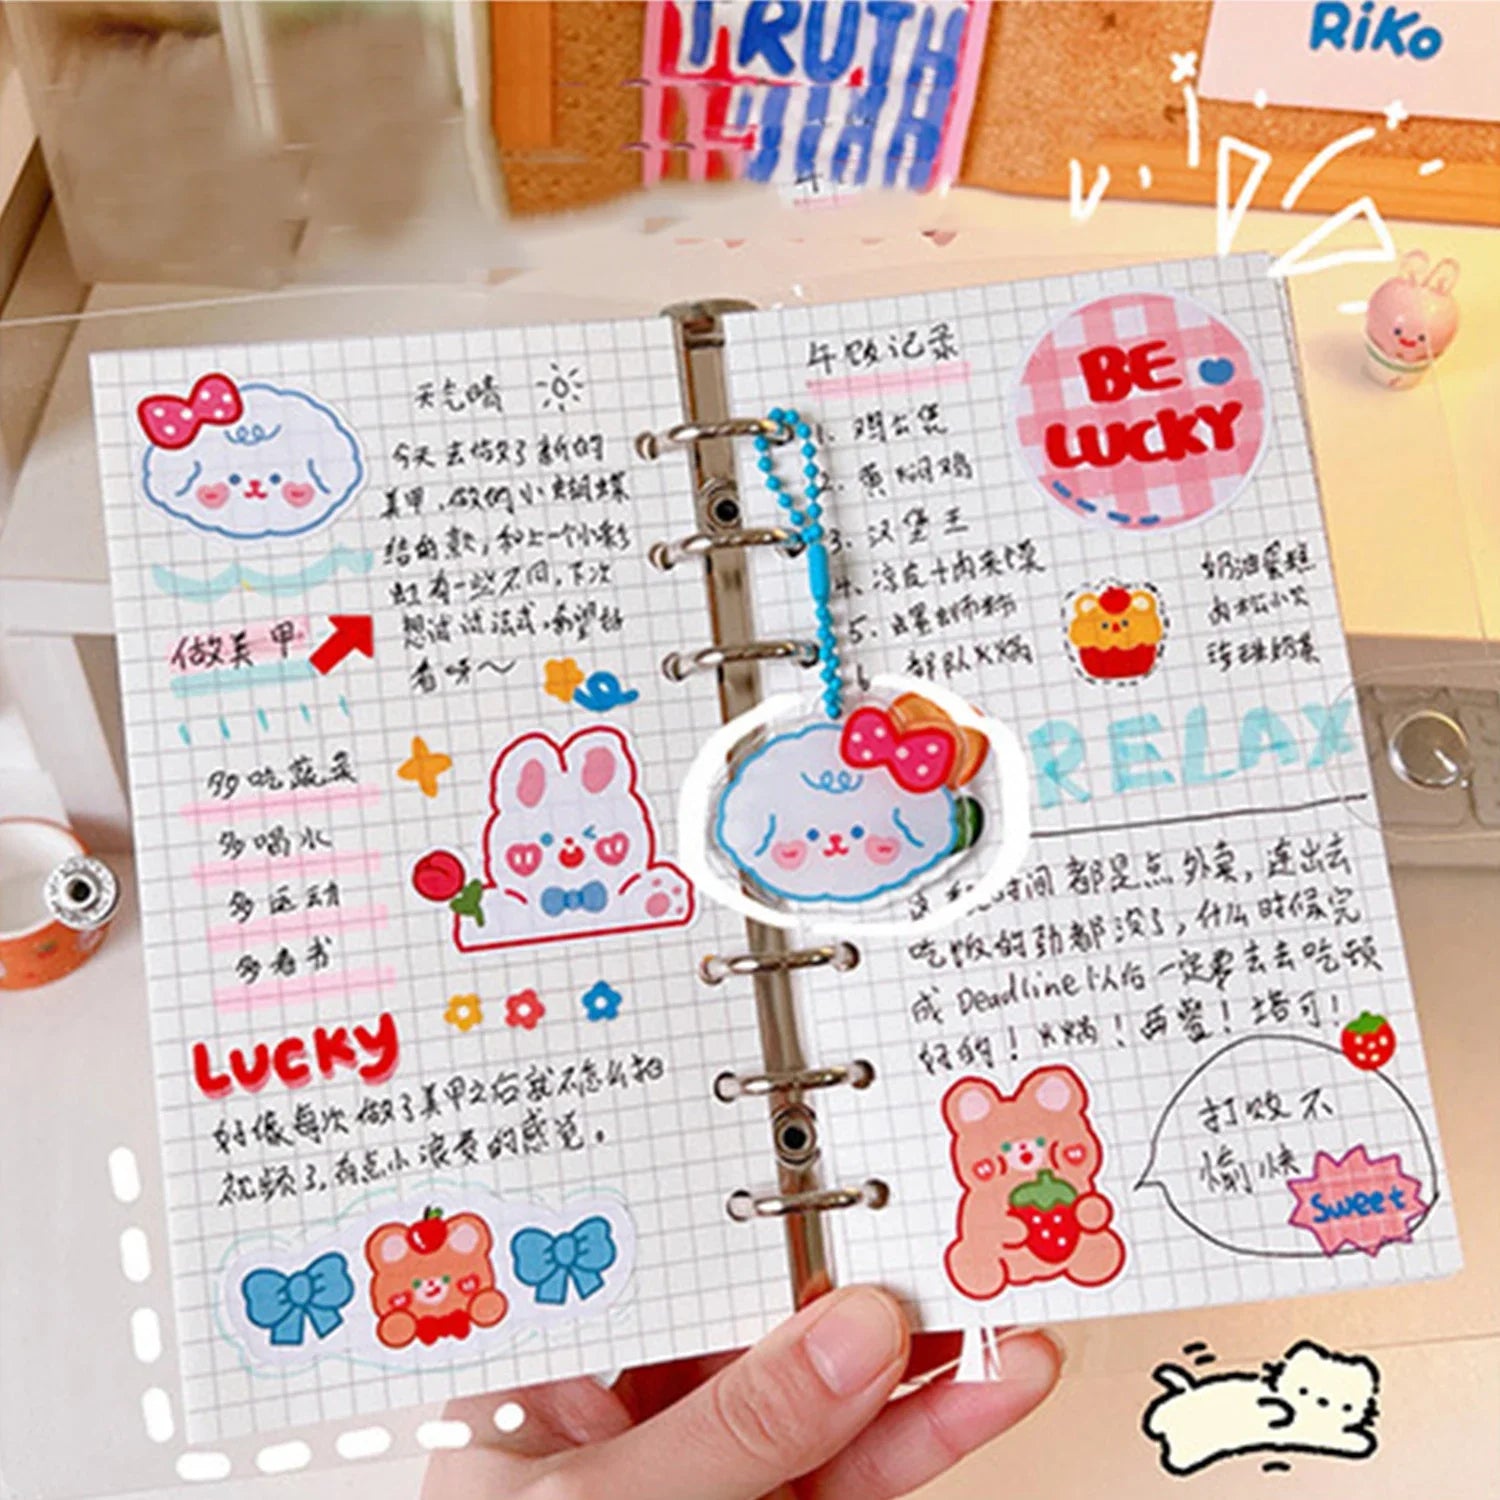 TRUTH
RiKo
天气晴
今天去做了新的
美甲,做的小蝴蝶
结的款,和上一个小彩
虹有一些不同,下次
想试试法式,希望好
看呀~
做美甲
多吃蔬菜
多喝水
多运动
多看书
LUCKY
好像每次做了美甲之后就不怎么拍
视频了,有点小浪费的感觉。
午饭记录
BE
LUCKY
1. 鸡公煲
2. 黄焖鸡
3. 汉堡王
4. 凉皮+肉夹馍
5. 螺蛳粉
6 部队火锅
奶油蛋糕
珍珠奶茶
RELAX
时间都是点外卖,连出去
吃饭的劲都没了,什么时候完
成Deadline以后一定要去去吃顿
好的!火锅!西餐!塔可!
打败不
愉快
Sweet